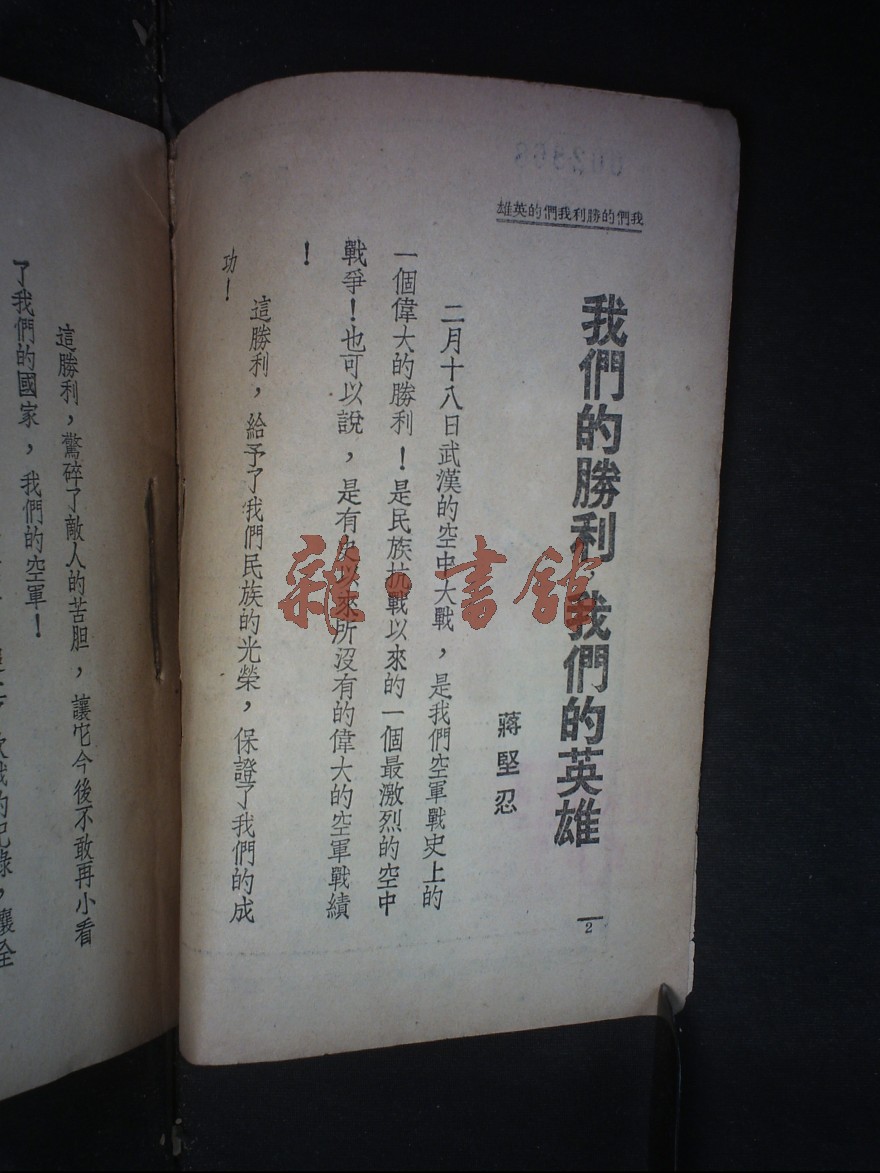 我們的勝利我們的英雄
我們的勝利，我們的英雄
蔣堅忍
二月十八日武漢的空中大戰，是我們空軍戰史上的
一個偉大的勝利！是民族抗戰以來的一個最激烈的空中
戰爭！也可以說，是有史以來所沒有的偉大的空軍戰績
！
這勝利，給予了我們民族的光榮，保證了我們的成
功！
2
這勝利，驚碎了敵人的苦胆，讓它今後不敢再小看
了我們的國家，我們的空軍！
的記錄，讓全
雜·書館